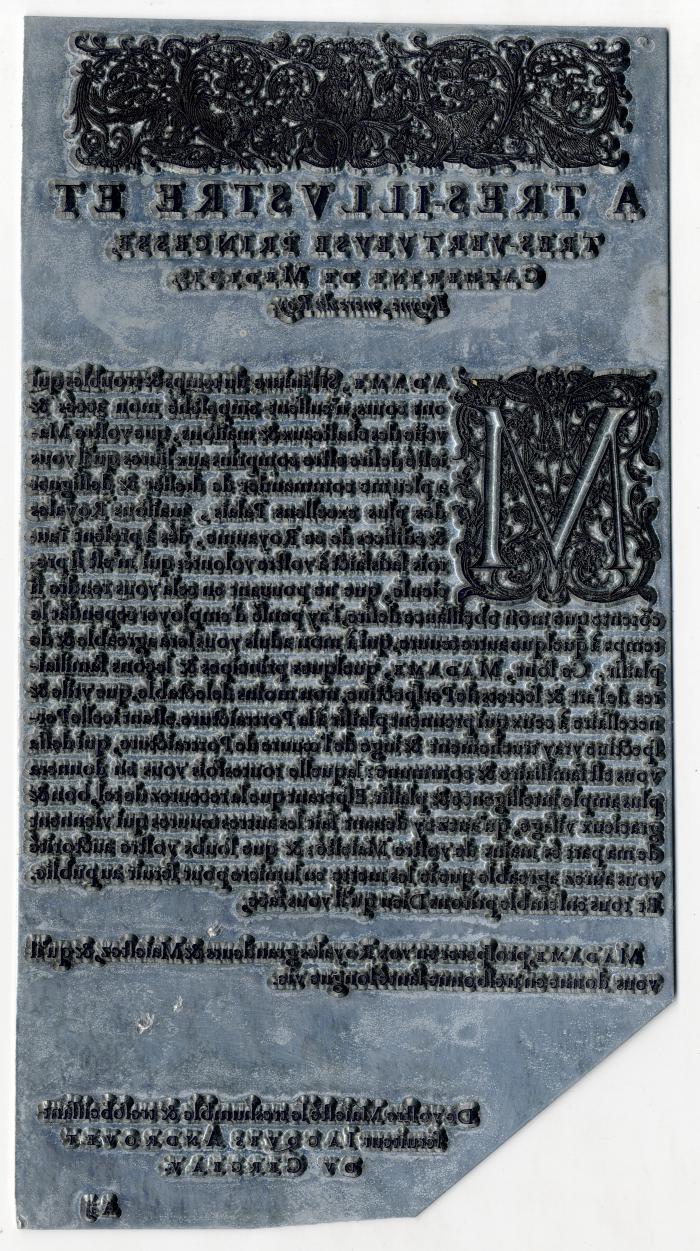 A TRES-ILLVSTRE ET
TRES-VERTVEVSE PRINCESSE,
CATHERINE DE MEDICIS,
Royne, mere du Roy.
MADAME, si l'iniure du temps & troubles qui
ont cours, n'eussent empesché mon accés &
veuë des chasteaux & maisons, que vostre Ma-
iesté desire estre comprins aux liures qu'il vous
a pleu me commander de dresser & designer
des plus excellens Palais, maisons Royales
& edifices de ce Royaume, dés à present i'au-
rois satisfaict à vostre volonté: qui m'est si pre-
que ne pouuant en cela vous rendre si
content que mon obeissance desire, i'ay pensé d'employer cependāt le
temps à quelque autre œuure, qui à mon aduis vous sera agreable & de
plaisir. Ce sont, MADAME, quelques principes & leçons familia-
res de l'art & secrets de Perspectiue, non moins delectable, que vtile &
necessaire à ceux qui prennent plaisir à la Portraicture, estant icelle Per-
spectiue vray truchement & iuge de l'œuure de Portraicture, qui desia
vous est familiaire & commune: laquelle toutesfois vous en donnera
plus ample intelligence & plaisir. Esperant que la receurez de tel bon &
gracieux visage, qu'auez cy deuant fait les autres œuures qui vienent
de ma part & main de vostre Maiesté: & que soubs vostre authorité
vous aurez agreable que ie les mette en lumiere pour seruir au public.
Et tous ensemble prions Dieu qu'il vous face,
MADAME, prosperer en vos Royales grandeurs & Maiestez, & qu'il
vous donne en pleine santé longue vie.
De vostre Maiesté le treshumble & tresobeissant
seruiteur IACQVES ANDROVET
DV CERCEAV.
A ij